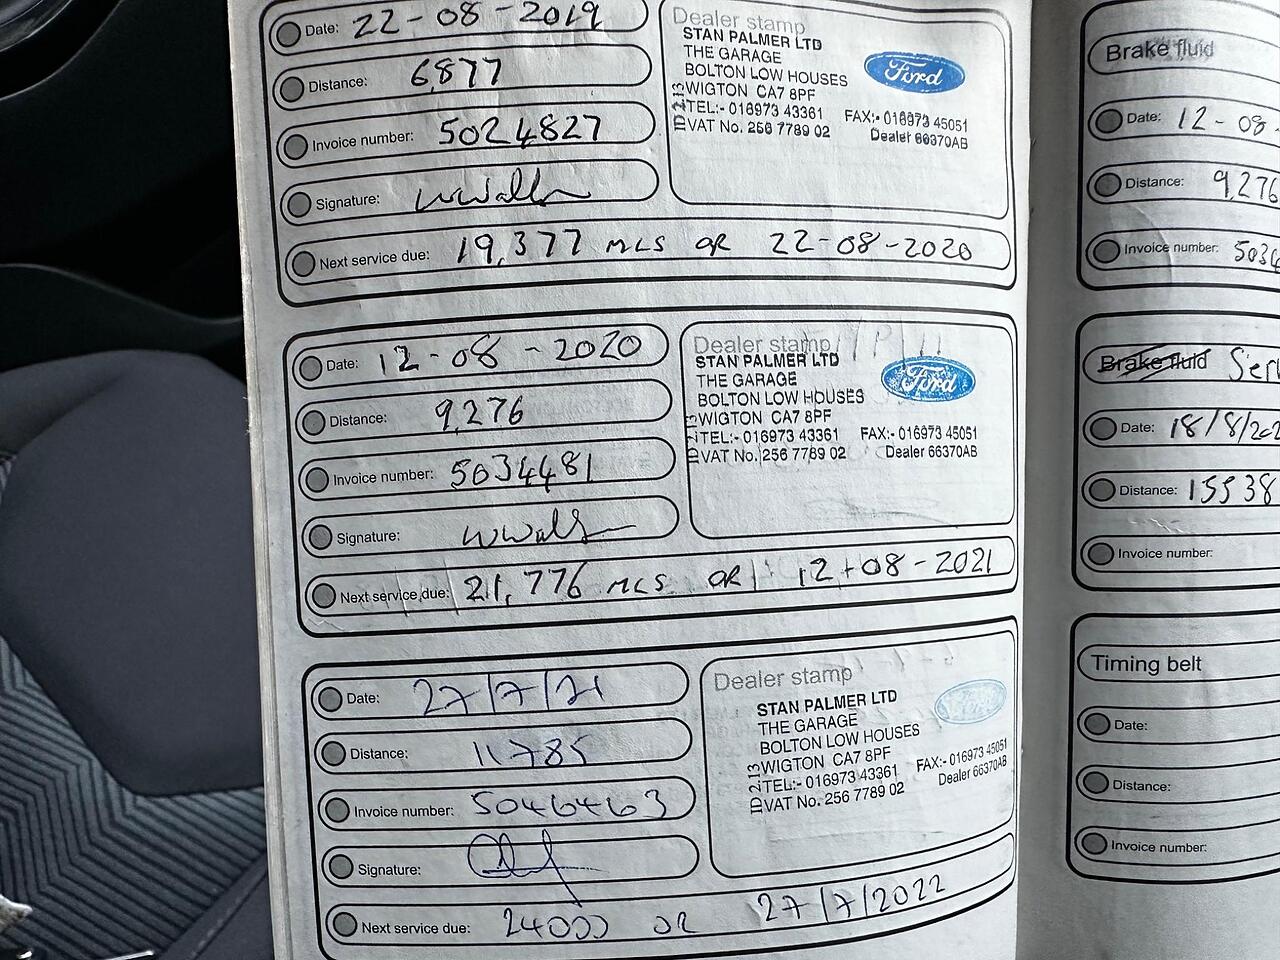 Date: 22-08-2019
Distance: 6,877
Invoice number: 5024827
Signature:
Next service due: 19,377 MLS OR 22-08-2020
Dealer stamp
STAN PALMER LTD
THE GARAGE
BOLTON LOW HOUSES
WIGTON CA7 8PF
TEL:- 016973 43361 FAX:- 016973 45051
VAT No. 256 7789 02 Dealer 66370AB
Ford
Date: 12-08-2020
Distance: 9,276
Invoice number: 5034481
Signature:
Next service due: 21,776 MLS OR 12-08-2021
Dealer stamp
STAN PALMER LTD
THE GARAGE
BOLTON LOW HOUSES
WIGTON CA7 8PF
TEL:- 016973 43361 FAX:- 016973 45051
VAT No. 256 7789 02 Dealer 66370AB
Ford
Date: 27/7/21
Distance: 11785
Invoice number: 5046463
Signature:
Next service due: 24000 OR 27/7/2022
Dealer stamp
STAN PALMER LTD
THE GARAGE
BOLTON LOW HOUSES
WIGTON CA7 8PF
TEL:- 016973 43361 FAX:- 016973 45051
VAT No. 256 7789 02 Dealer 66370AB
Brake fluid
Date: 12-08-
Distance: 9,276
Invoice number: 503
Brake fluid Ser
Date: 18/8/202
Distance: 15538
Invoice number:
Timing belt
Date:
Distance:
Invoice number: